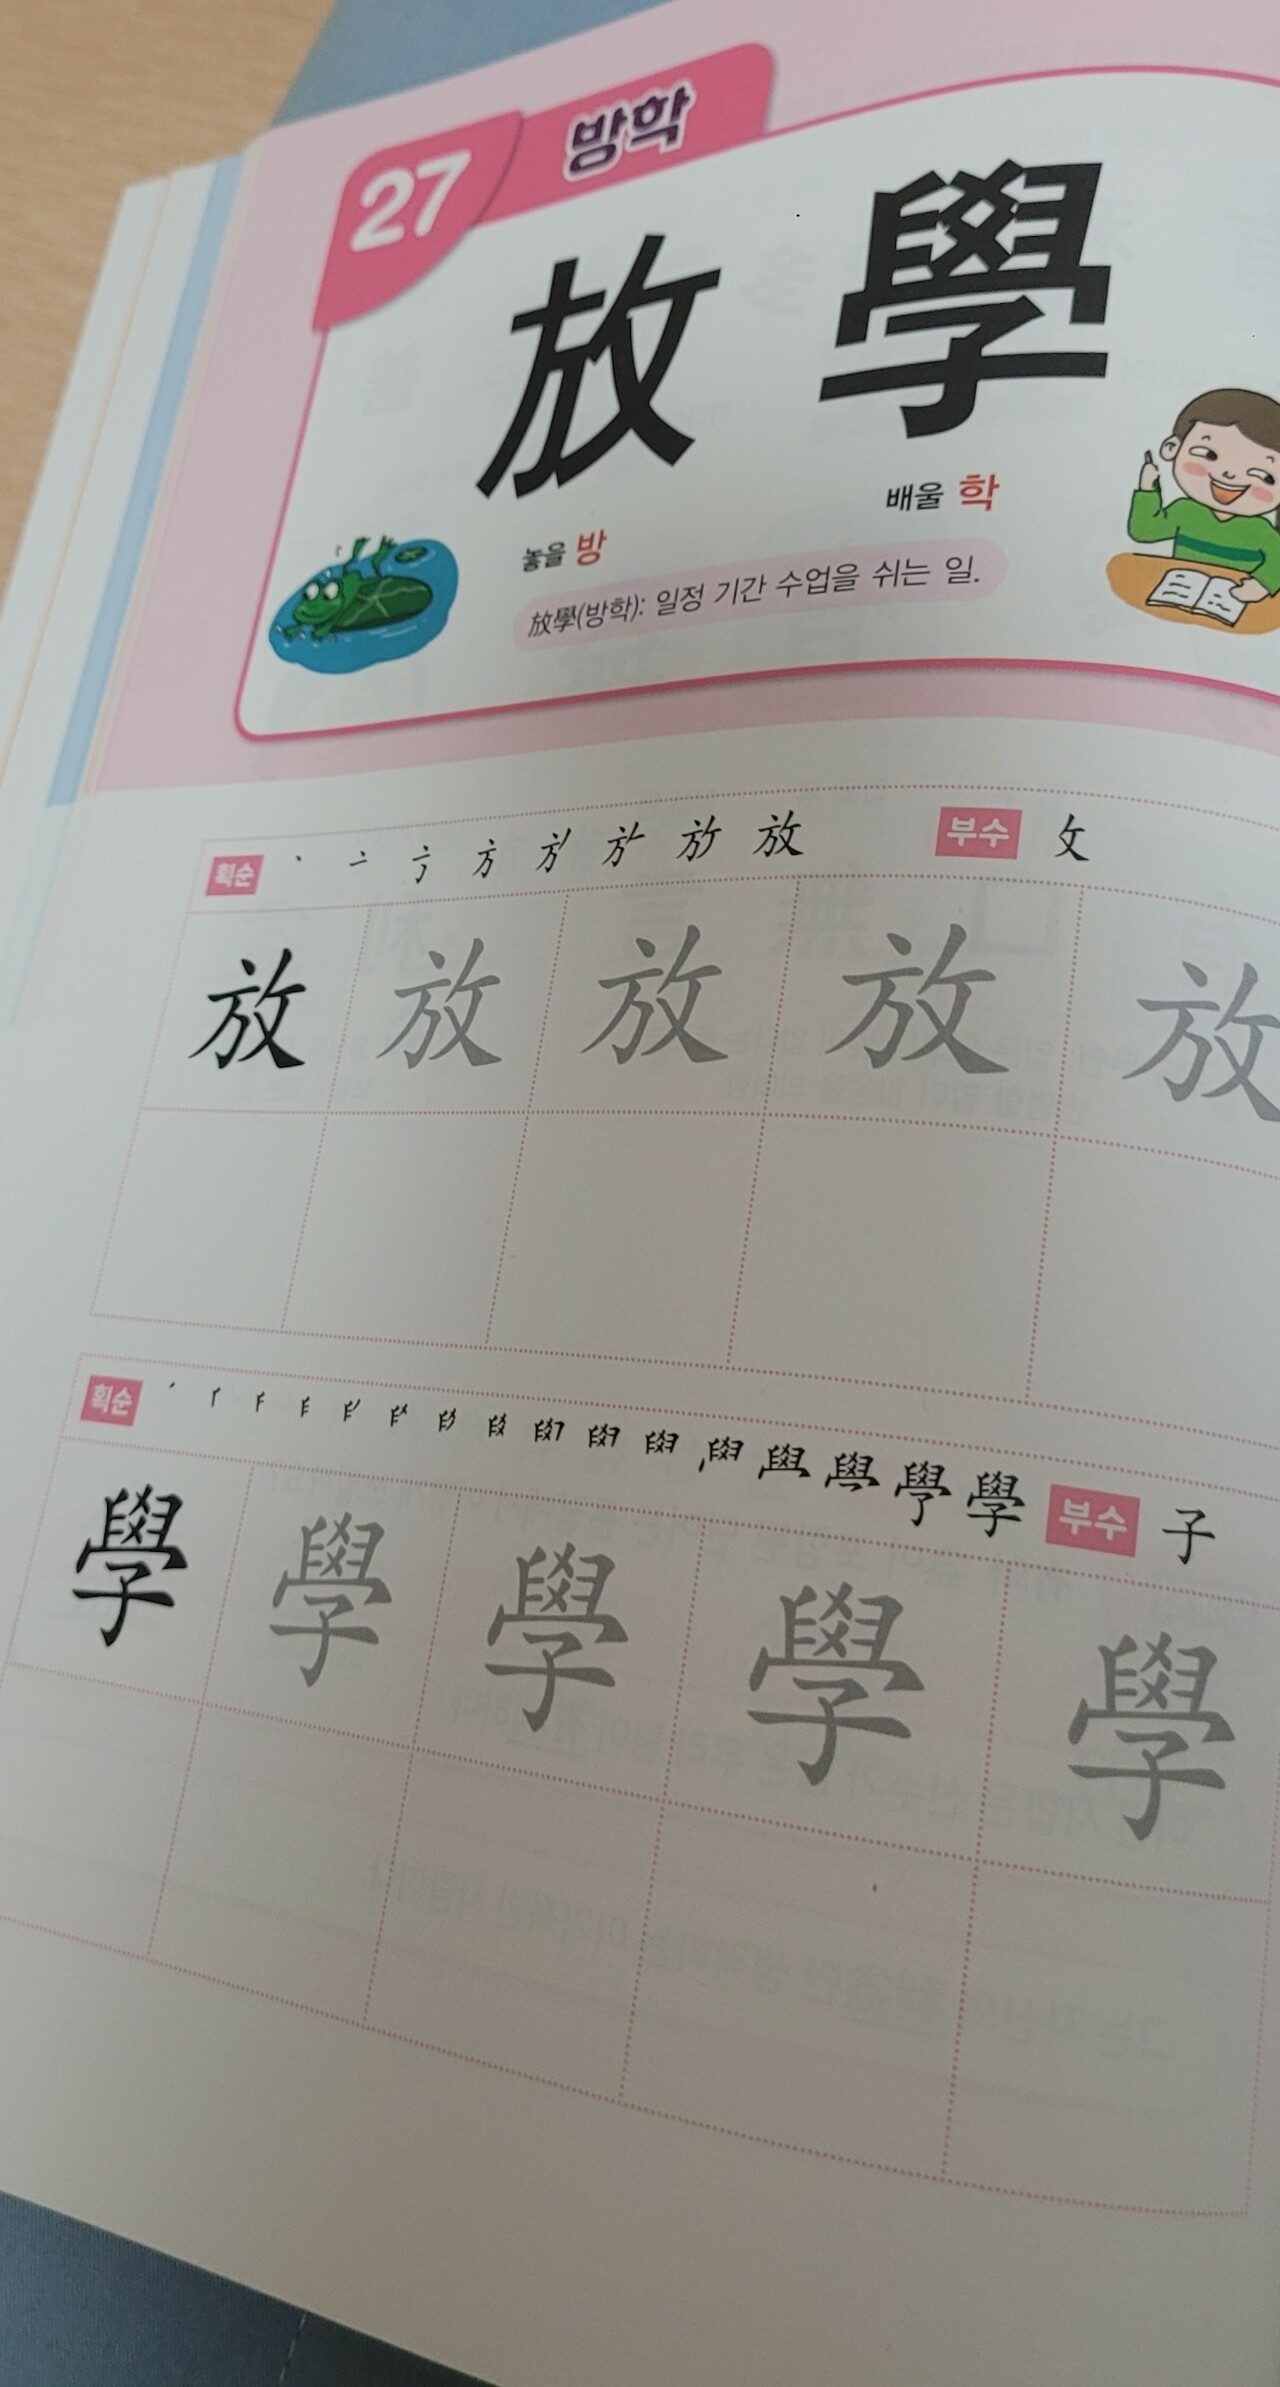 27 방학
放 學
놓을 방 배울 학
放學(방학): 일정 기간 수업을 쉬는 일.
획순 放 부수 攵
放 放 放 放 放
획순 學 부수 子
學 學 學 學 學